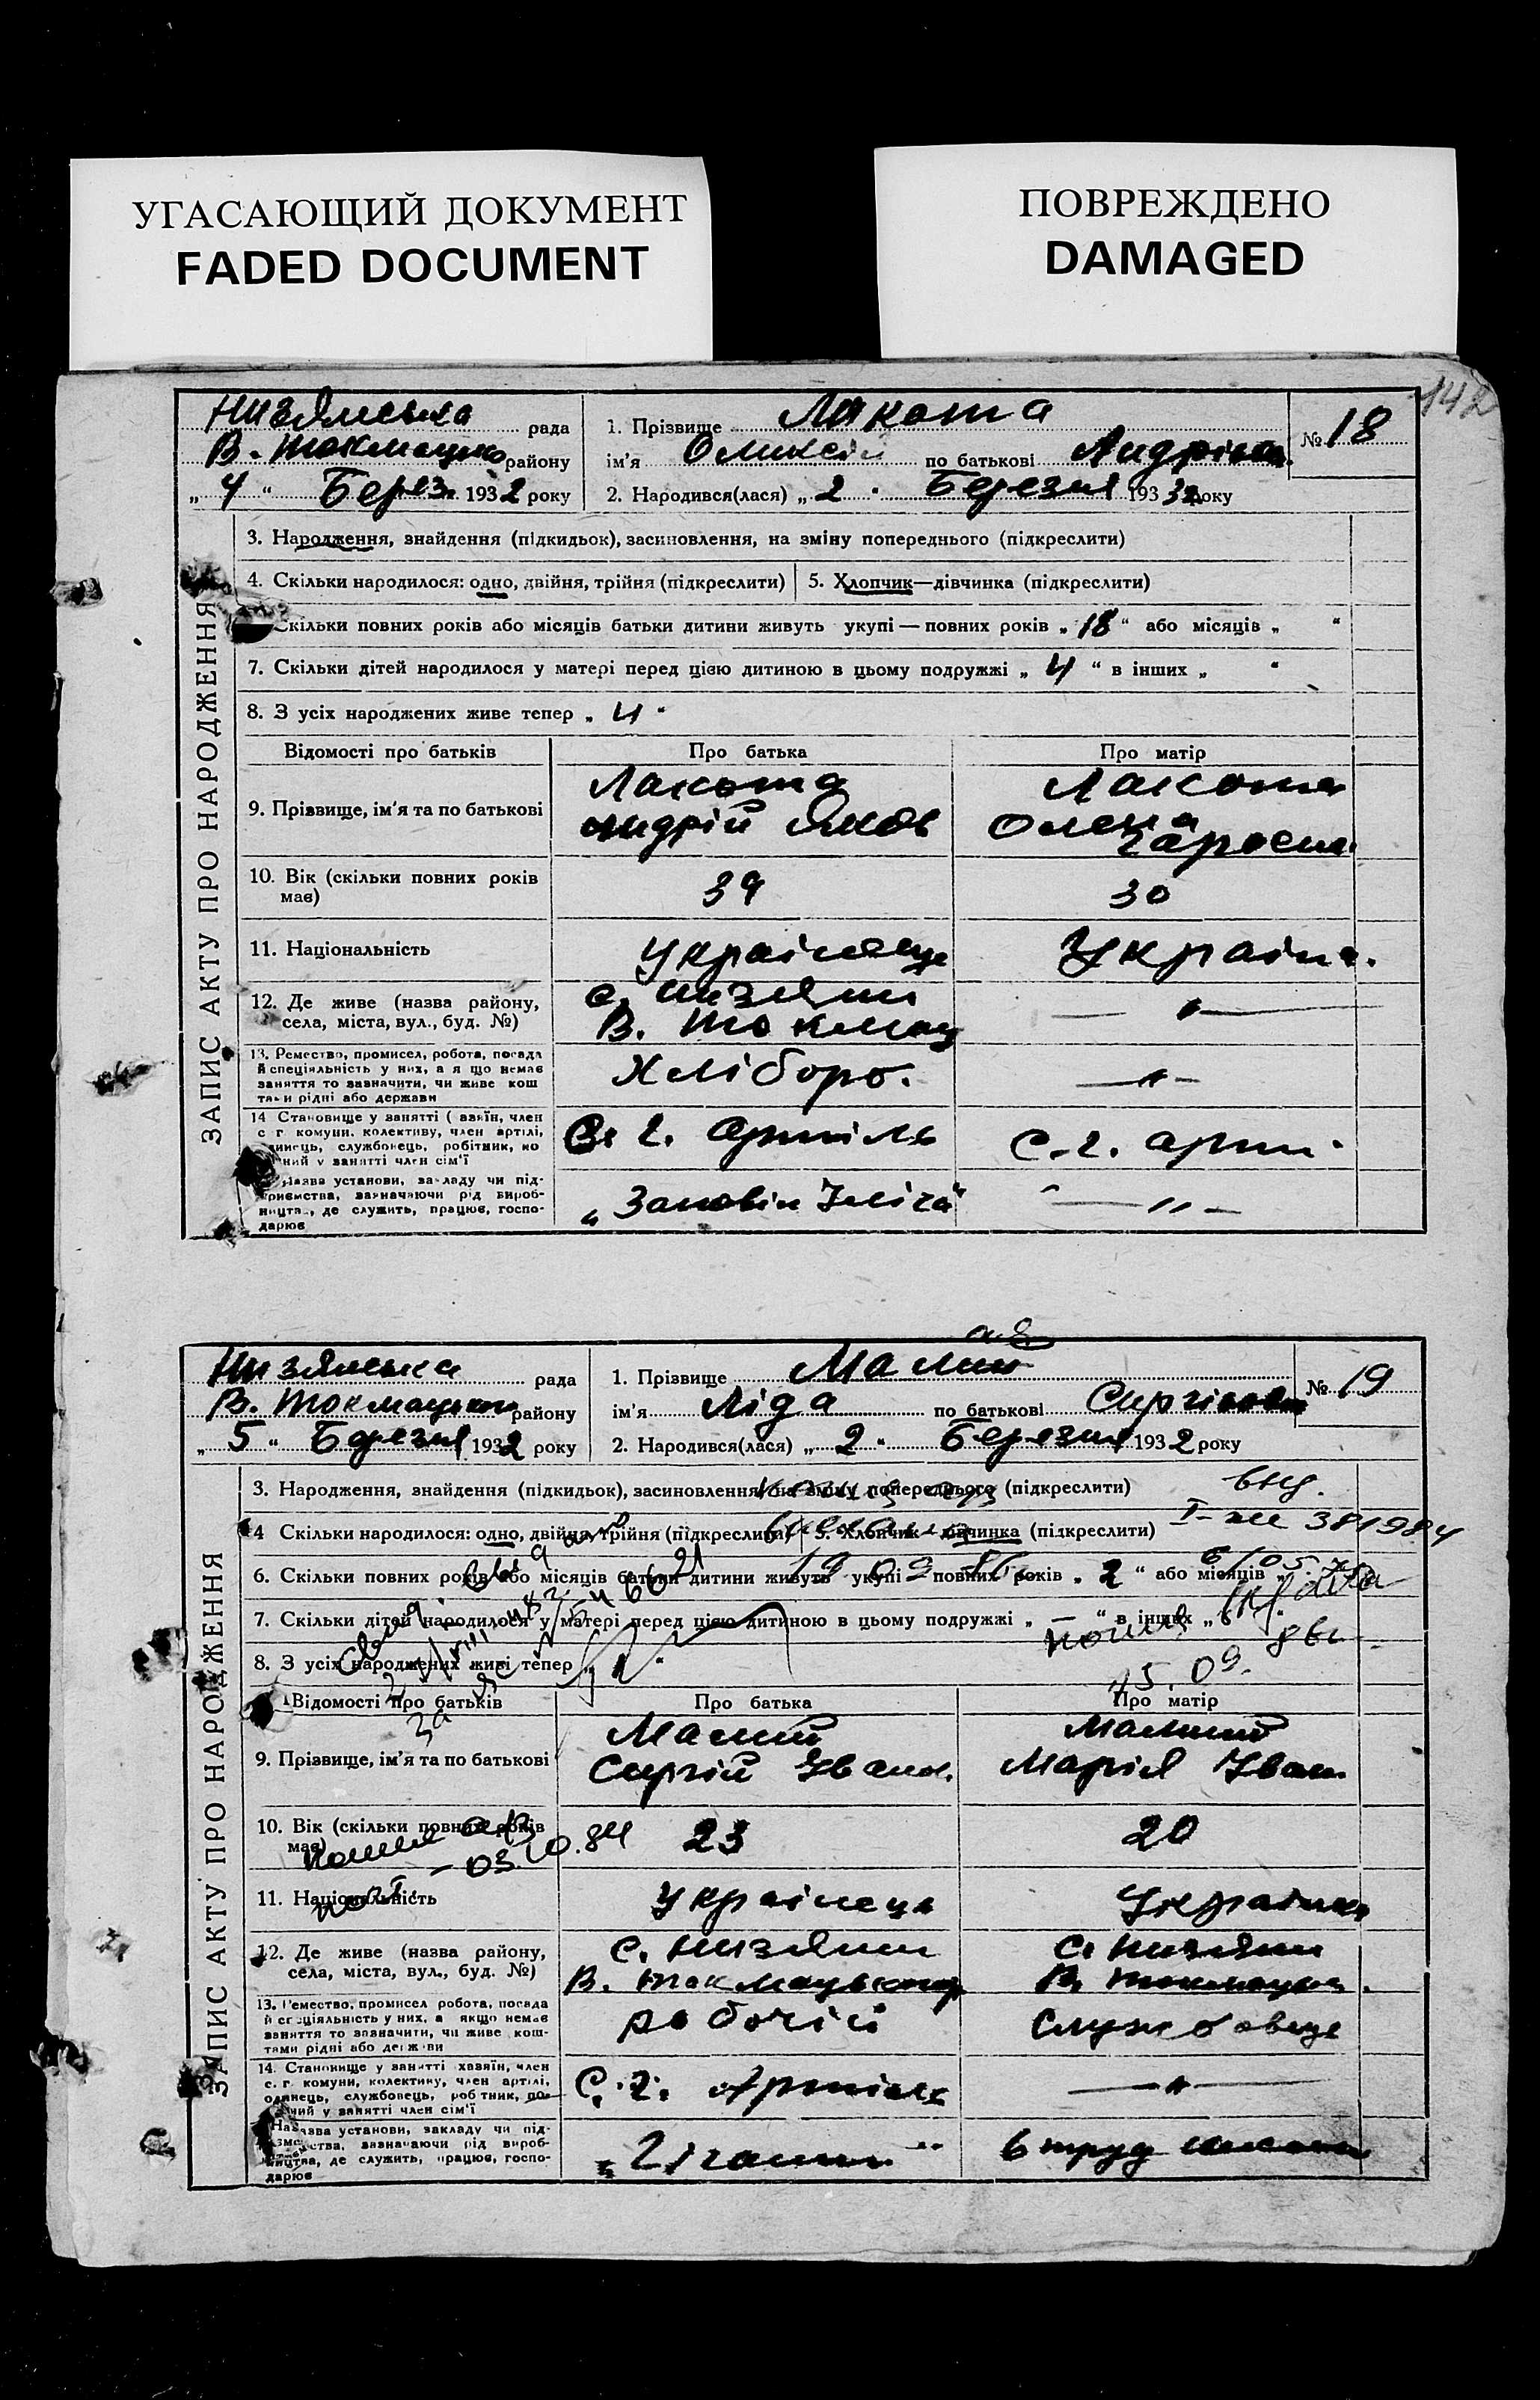 УГАСАЮЩИЙ ДОКУМЕНТ
FADED DOCUMENT
ПОВРЕЖДЕНО
DAMAGED
142
ЗАПИС АКТУ ПРО НАРОДЖЕННЯ
Низянська рада
В. Токмацько району
„ 4 “ Берез. 1932 року
1. Прізвище Лакота
ім'я Олексій по батькові Андрієв.
2. Народився(лася) „ 2 “ Березня 1932 року
№ 18
3. Народження, знайдення (підкидьок), засиновлення, на зміну попереднього (підкреслити)
4. Скільки народилося: одно, двійня, трійня (підкреслити)
5. Хлопчик—дівчинка (підкреслити)
Скільки повних років або місяців батьки дитини живуть укупі — повних років „ 18 “ або місяців „ “
7. Скільки дітей народилося у матері перед цією дитиною в цьому подружжі „ 4 “ в інших „ “
8. З усіх народжених живе тепер „ 4 “
Відомості про батьків
Про батька
Про матір
9. Прізвище, ім'я та по батькові
Лакота
Андрій Яков
Лакота
Олена
10. Вік (скільки повних років
має)
39
30
11. Національність
Українець
Україн.
12. Де живе (назва району,
села, міста, вул., буд. №)
с. Низяни
В. Токмац
— " —
13. Ремество, промисел, робота, посада
й спеціяльність у них, а я що немає
заняття то зазначити, чи живе кош
тами рідні або держави
Хлібороб.
— " —
14 Становище у занятті (хазяїн, член
с г комуни, колективу, член артілі,
динець, службовець, робітник, по
ний у занятті член сім'ї
С. г. артіль
С. г. арті.
Назва установи, закладу чи під-
приємства, зазначаючи рід вироб-
ництва, де служить, працює, госпо-
дарює
„Заповіт Ілліча“
— " —
ЗАПИС АКТУ ПРО НАРОДЖЕННЯ
Низянська рада
В. Токмацького району
„ 5 “ Березня 1932 року
1. Прізвище Малий
ім'я Ліда по батькові Сиргіївна
2. Народився(лася) „ 2 “ Березня 1932 року
№ 19
3. Народження, знайдення (підкидьок), засиновлення, на зміну попереднього (підкреслити)
4 Скільки народилося: одно, двійня, трійня (підкреслити)
5. Хлопчик—дівчинка (підкреслити)
381984
6. Скільки повних років або місяців батьки дитини живуть укупі — повних років „ 2 “ або місяців „
7. Скільки дітей народилося у матері перед цією дитиною в цьому подружжі „ — “ в інших „
8. З усіх народжених живі тепер „
15.09.
Відомості про батьків
Про батька
Про матір
9. Прізвище, ім'я та по батькові
Малий
Сиргій Іванов.
Марія Іван.
10. Вік (скільки повних років
має)
03.10.84
23
20
11. Національність
Українець
Українка
12. Де живе (назва району,
села, міста, вул., буд. №)
с. Низяни
В. Токмацького
с. Низяни
В. Токмацьк.
13. Ремество, промисел робота, посада
й спеціяльність у них, а якщо немає
заняття то зазначити, чи живе кош-
тами рідні або держави
робочій
Службовець
14. Становище у занятті хазяїн, член
с. г. комуни, колективу, член артілі,
одинець, службовець, роб тник, по-
ний у занятті член сім'ї
С. г. Артіль
— " —
Назва установи, закладу чи під-
приємства, зазначаючи рід вироб-
ництва, де служить, працює, госпо-
дарює
в труд школі